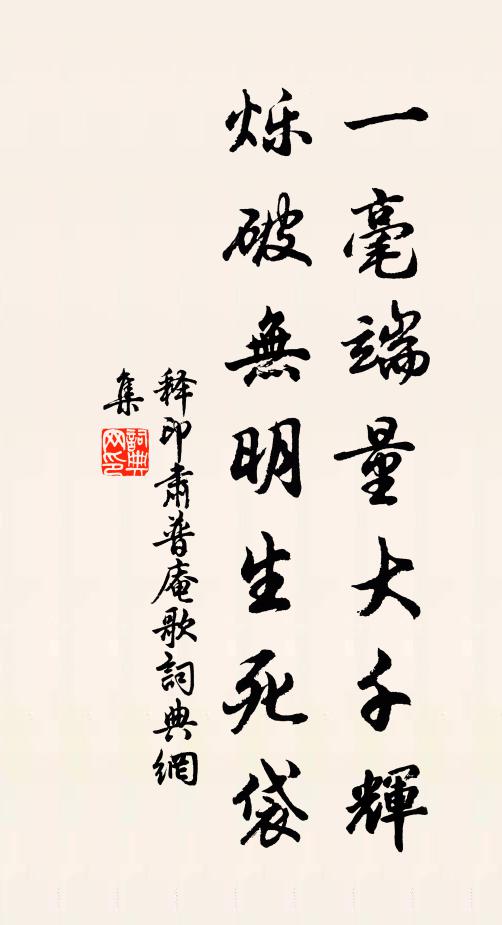 一毫端量大千輝
烁破無明生死袋
释印肃普庵歌詞典網
集
詞典
网印